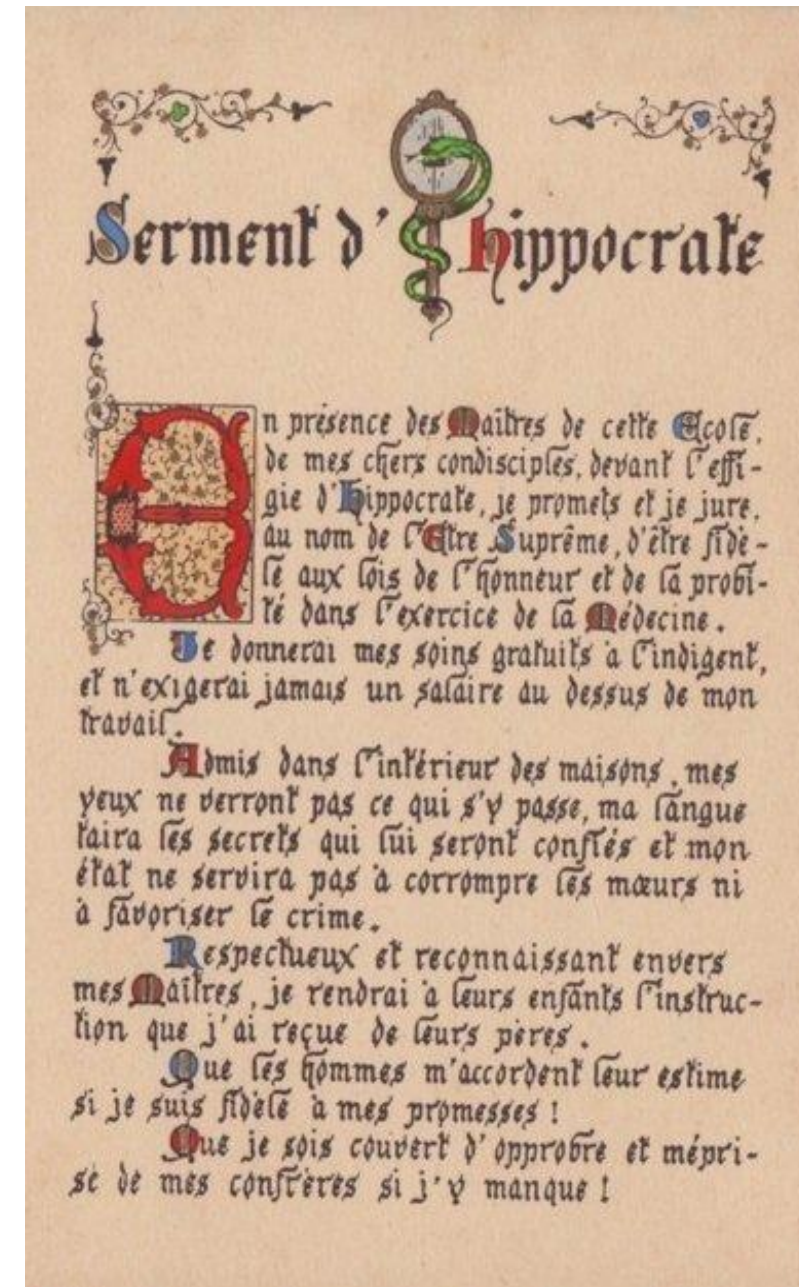 Serment d'hippocrate
En présence des Maîtres de cette Ecole,
de mes chers condisciples, devant l'effi-
gie d'Hippocrate, je promets et je jure,
au nom de l'Etre Suprême, d'être fidè-
le aux lois de l'honneur et de la probi-
té dans l'exercice de la Médecine.
Je donnerai mes soins gratuits à l'indigent,
et n'exigerai jamais un salaire au dessus de mon
travail.
Admis dans l'intérieur des maisons, mes
yeux ne verront pas ce qui s'y passe, ma langue
taira les secrets qui lui seront confiés et mon
état ne servira pas à corrompre les mœurs ni
à favoriser le crime.
Respectueux et reconnaissant envers
mes Maîtres, je rendrai à leurs enfants l'instruc-
tion que j'ai reçue de leurs pères.
Que les hommes m'accordent leur estime
si je suis fidèle à mes promesses !
Que je sois couvert d'opprobre et mépri-
sé de mes confrères si j'y manque !